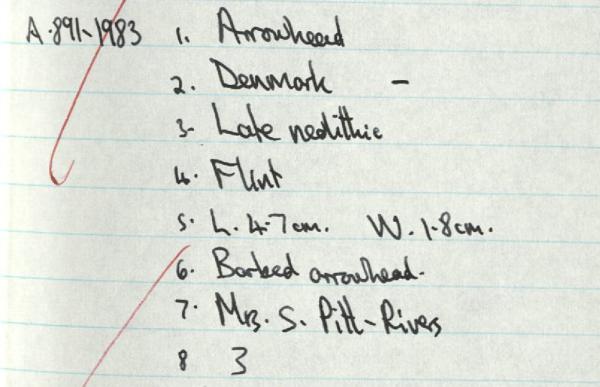 A.891-1983 1. Arrowhead
2. Denmark -
3. Late neolithic
4. Flint
5. L. 4.7cm. W. 1.8cm.
6. Barbed arrowhead.
7. Mrs. S. Pitt-Rivers
8 3